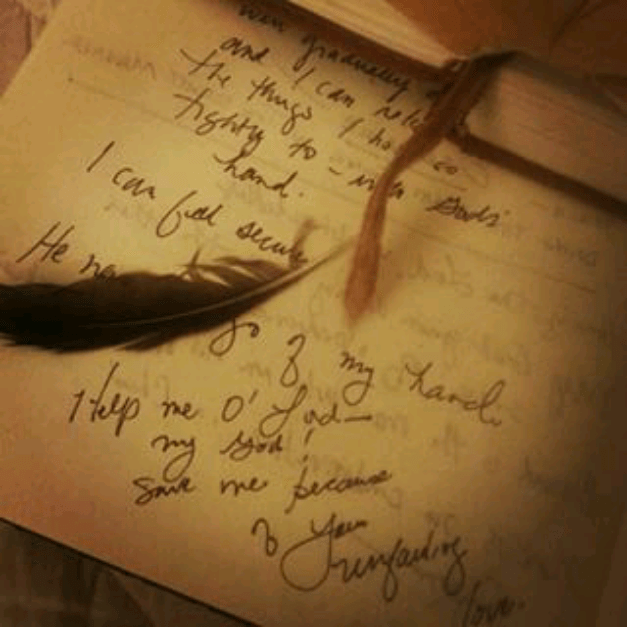 gradually
and I can rel
the things I ho
tightly to - in God's
hand.
I can feel secure
He
go of my hand.
Help me O' Lord—
my God!
Save me because
of your
unfailing
love.